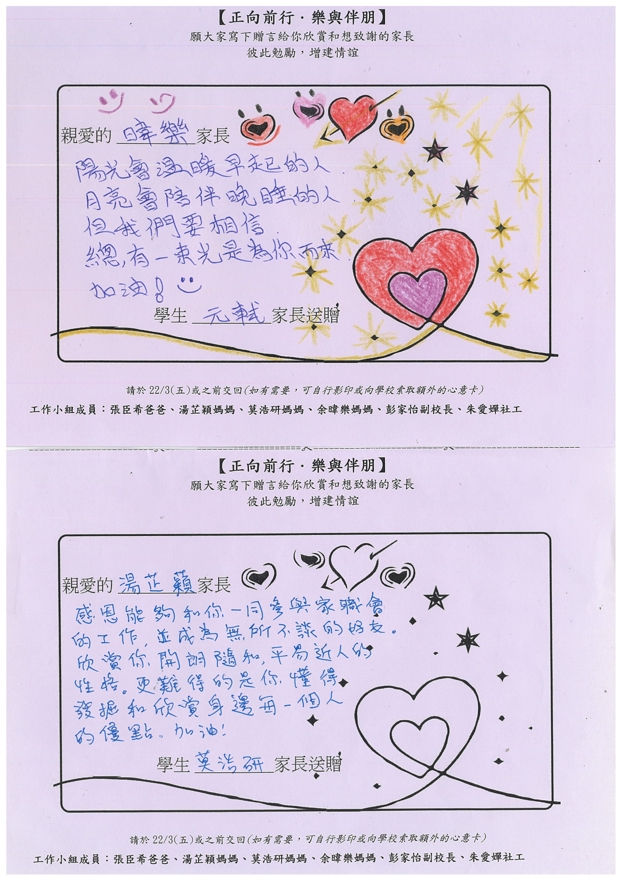 【正向前行．樂與伴朋】
願大家寫下贈言給你欣賞和想致謝的家長
彼此勉勵，增建情誼
親愛的 暐樂 家長
陽光會溫暖早起的人
月亮會陪伴晚睡的人
但我們要相信
總有一束光是為你而來
加油！
學生 元軾 家長送贈
請於 22/3(五)或之前交回(如有需要，可自行影印或向學校索取額外的心意卡)
工作小組成員：張臣希爸爸、湯芷穎媽媽、莫浩研媽媽、余暐樂媽媽、彭家怡副校長、朱愛嬋社工
【正向前行．樂與伴朋】
願大家寫下贈言給你欣賞和想致謝的家長
彼此勉勵，增建情誼
親愛的 湯芷穎 家長
感恩能夠和你一同參與家職會
的工作，並成為無所不談的好友。
欣賞你開朗隨和，平易近人的
性格。更難得的是你懂得
發掘和欣賞身邊每一個人
的優點。加油！
學生 莫浩研 家長送贈
請於 22/3(五)或之前交回(如有需要，可自行影印或向學校索取額外的心意卡)
工作小組成員：張臣希爸爸、湯芷穎媽媽、莫浩研媽媽、余暐樂媽媽、彭家怡副校長、朱愛嬋社工